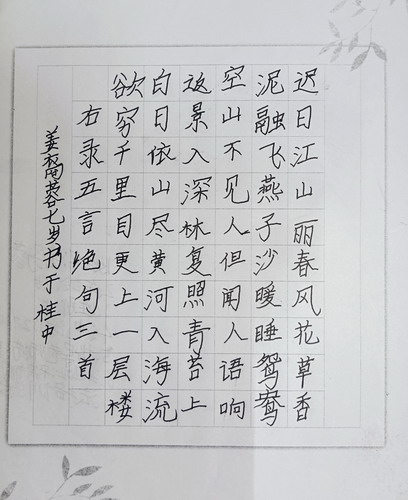 迟日江山丽春风花草香
泥融飞燕子沙暖睡鸳鸯
空山不见人但闻人语响
返景入深林复照青苔上
白日依山尽黄河入海流
欲穷千里目更上一层楼
右录五言绝句三首
姜蓉七岁书于桂中